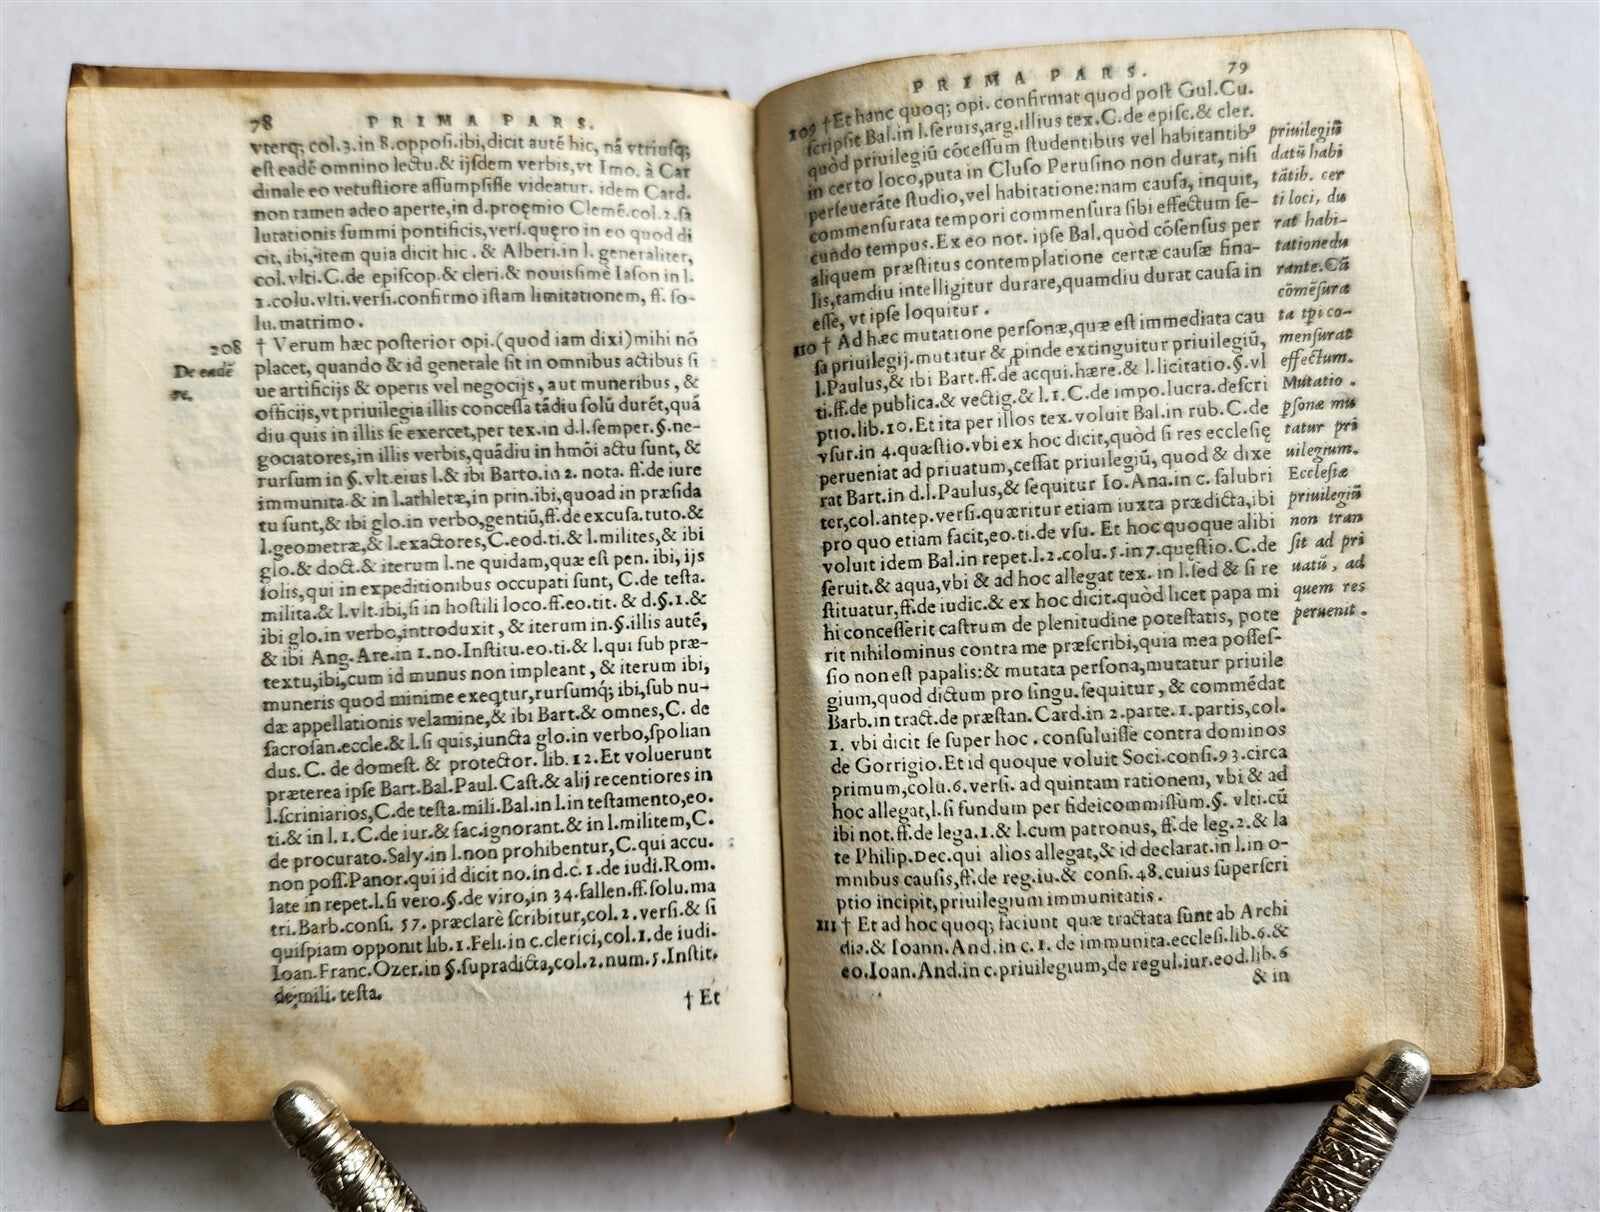 78 PRIMA PARS.
vterq; col.3. in 8.opposi.ibi, dicit autẽ hic, nã vtriusq;
est eadẽ omnino lectu.& ijsdem verbis, vt Imo. à Car
dinale eo vetustiore assumpsisse videatur. idem Card.
non tamen adeo aperte, in d.proęmio Clemẽ.col.2.sa
lutationis summi pontificis, vers. quęro in eo quod di
cit, ibi, item quia dicit hic. & Alberi.in l. generaliter,
col.vlti.C.de episcop.& cleri.& nouissimè Iason in l.
1.colu.vlti.versi.confirmo istam limitationem, ff. so-
lu.matrimo.
208
† Verum hæc posterior opi.(quod iam dixi)mihi nõ
De eadẽ
placet, quando & id generale sit in omnibus actibus si
re.
ue artificijs & operis vel negocijs, aut muneribus, &
officijs, vt priuilegia illis concessa tãdiu solũ durẽt, quã
diu quis in illis se exercet, per tex.in d.l.semper.§.ne-
gociatores, in illis verbis, quãdiu in hmõi actu sunt, &
rursum in §.vlt.eius l.& ibi Barto.in 2. nota. ff.de iure
immunita.& in l.athletæ, in prin.ibi, quoad in præsida
tu sunt, & ibi glo.in verbo, gentiũ, ff.de excusa.tuto.&
l.geometræ, & l.exactores, C.eod.ti.& l.milites, & ibi
glo.& doct.& iterum l.ne quidam, quæ est pen. ibi, ijs
solis, qui in expeditionibus occupati sunt, C.de testa.
milita.& l.vlt.ibi, si in hostili loco.ff.eo.tit. & d.§.1.&
ibi glo.in verbo, introduxit, & iterum in.§.illis autẽ,
& ibi Ang.Are.in 1.no.Institu.eo.ti.& l.qui sub præ-
textu, ibi, cum id munus non impleant, & iterum ibi,
muneris quod minime exeqtur, rursumq́; ibi, sub nu-
dæ appellationis velamine, & ibi Bart.& omnes, C. de
sacrosan.eccle.& l.si quis, iuncta glo.in verbo, spolian
dus.C. de domest. & protector. lib.12.Et voluerunt
præterea ipse Bart.Bal.Paul. Cast.& alij recentiores in
l.scriniarios, C.de testa.mili.Bal.in l.in testamento, eo.
ti.& in l.1.C.de iur.& fac.ignorant.& in l.militem, C.
de procurato.Saly.in l.non prohibentur, C.qui accu.
non poss.Panor.qui id dicit no.in d.c.1.de iudi.Rom.
late in repet.l.si vero.§.de viro, in 34.fallen.ff.solu.ma
tri.Barb.consi. 57. præclarè scribitur, col.2.versi.& si
quispiam opponit lib.1.Feli.in c.clerici, col.1.de iudi.
Ioan.Franc.Ozer.in §.supradicta, col.2.num.5.Instit.
de mili. testa.
† Et
PRIMA PARS. 79
109 † Et hanc quoq; opi. confirmat quod post Gul.Cu.
scripsit Bal.in l.seruis, arg.illius tex.C.de episc.& cler.
quòd priuilegiũ cõcessum studentibus vel habitantibꝰ
in certo loco, puta in Cluso Perusino non durat, nisi
perseuerãte studio, vel habitatione:nam causa, inquit,
commensurata tempori commensura sibi effectum se-
cundo tempus.Ex eo not. ipse Bal.quòd cõsensus per
aliquem præstitus contemplatione certæ causæ fina-
lis, tamdiu intelligitur durare, quamdiu durat causa in
esse, vt ipse loquitur.
priuilegiũ
datũ habi
tãtib. cer
ti loci, du
rat habi-
tatione du
rante. Cã
cõmẽsura
ta tpi co-
mensurat
effectum.
110 † Ad hæc mutatione personæ, quæ est immediata cau
sa priuilegij.mutatur & ꝑinde extinguitur priuilegiũ,
l.Paulus, & ibi Bart.ff.de acqui.hære.& l.licitatio.§.vl
ti.ff.de publica.& vectig.& l.1.C.de impo.lucra.descri
ptio.lib.10.Et ita per illos tex.voluit Bal.in rub.C.de
vsur.in 4.quæstio.vbi ex hoc dicit, quòd si res ecclesię
perueniat ad priuatum, cessat priuilegiũ, quod & dixe
rat Bart.in d.l.Paulus, & sequitur Io.Ana.in c. salubri
ter, col.antep.versi.quæritur etiam iuxta prædicta, ibi
pro quo etiam facit, eo.ti.de vsu. Et hoc quoque alibi
voluit idem Bal.in repet.l.2.colu.5.in 7.quęstio.C.de
seruit.& aqua, vbi & ad hoc allegat tex. in l.sed & si re
stituatur, ff.de iudic.& ex hoc dicit.quòd licet papa mi
hi concesserit castrum de plenitudine potestatis, pote
rit nihilominus contra me præscribi, quia mea posses-
sio non est papalis:& mutata persona, mutatur priuile
gium, quod dictum pro singu.sequitur, & commẽdat
Barb.in tract.de præstan.Card.in 2.parte.1.partis, col.
1. vbi dicit se super hoc. consuluisse contra dominos
de Gorrigio.Et id quoque voluit Soci.consi.93.circa
primum, colu.6.versi. ad quintam rationem, vbi & ad
hoc allegat, l.si fundum per fideicommissum.§. vlti.cũ
ibi not.ff.de lega.1.& l.cum patronus, ff.de leg.2.& la
te Philip.Dec.qui alios allegat, & id declarat.in l.in o-
mnibus causis, ff.de reg.iu.& consi.48.cuius superscri
ptio incipit, priuilegium immunitatis.
Mutatio.
ꝑsonæ mu
tatur pri
uilegium.
Ecclesiæ
priuilegiũ
non tran
sit ad pri
uatũ, ad
quem res
peruenit.
111 † Et ad hoc quoq; faciunt quæ tractata sunt ab Archi
dia.& Ioann.And.in c.1. de immunita.ecclesi.lib.6.&
eo.Ioan.And.in c.priuilegium, de regul.iur.eod.lib.6
& in